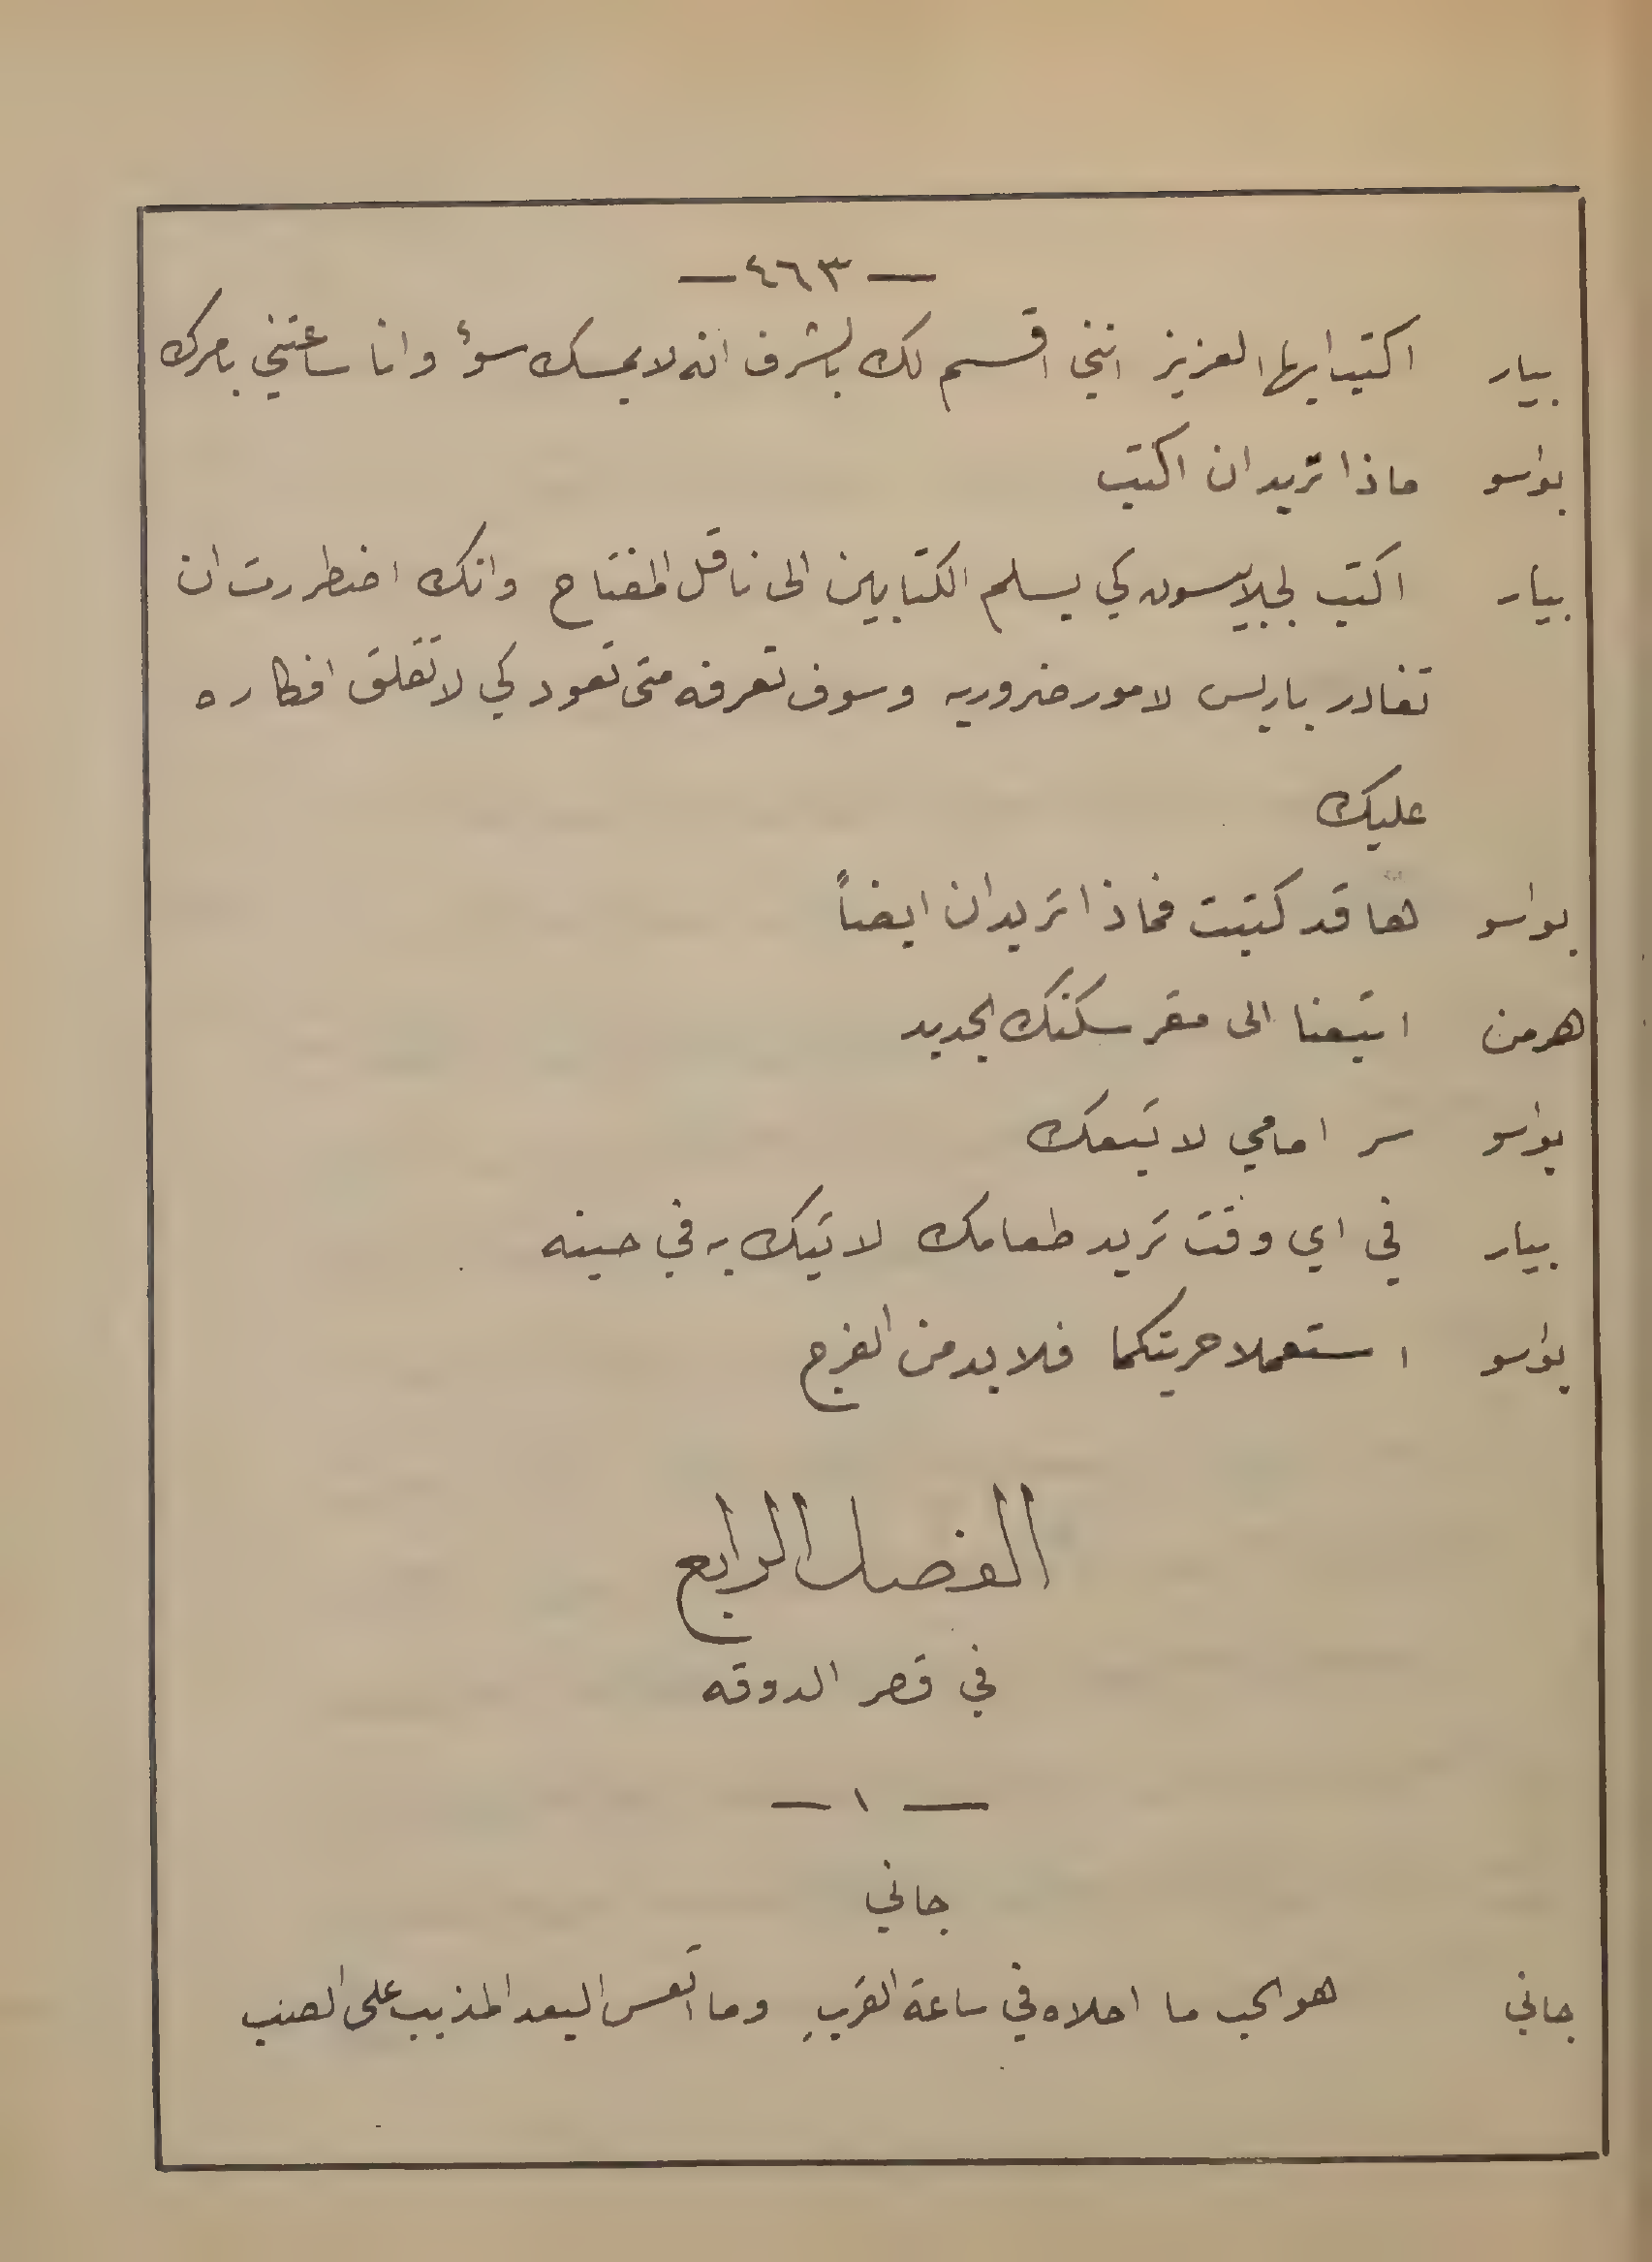 — ٤٦٣ —
بيار اكتب ايها العزيز انني اقسم لك بالشرف انه لا يمسك سوؤ وانا ساعتني بامرك
بواسو ماذا تريد ان اكتب
بيار اكتب لجلايسون كي يسلم الكتابين الى ناقل المفتاح وانك اضطررت ان
تغادر باريس لامور ضروريه وسوف تعرفه متى تعود كي لا تقلق افكاره
عليك
بواسو ها قد كتبت فماذا تريد ان ايضاً
هرمن اتبعنا الى مقر سكنك الجديد
بواسو سر امامي لاتبعك
بيار في اي وقت تريد طعامك لاتيك به في حينه
بواسو استعملا حريتكما فلا بد من الفرج
الفصل الرابع
في قصر الدوقه
— ١ —
جاني
جاني هو الحب ما احلاه في ساعة القربِ وما اتعس البعد المذيب على الصب